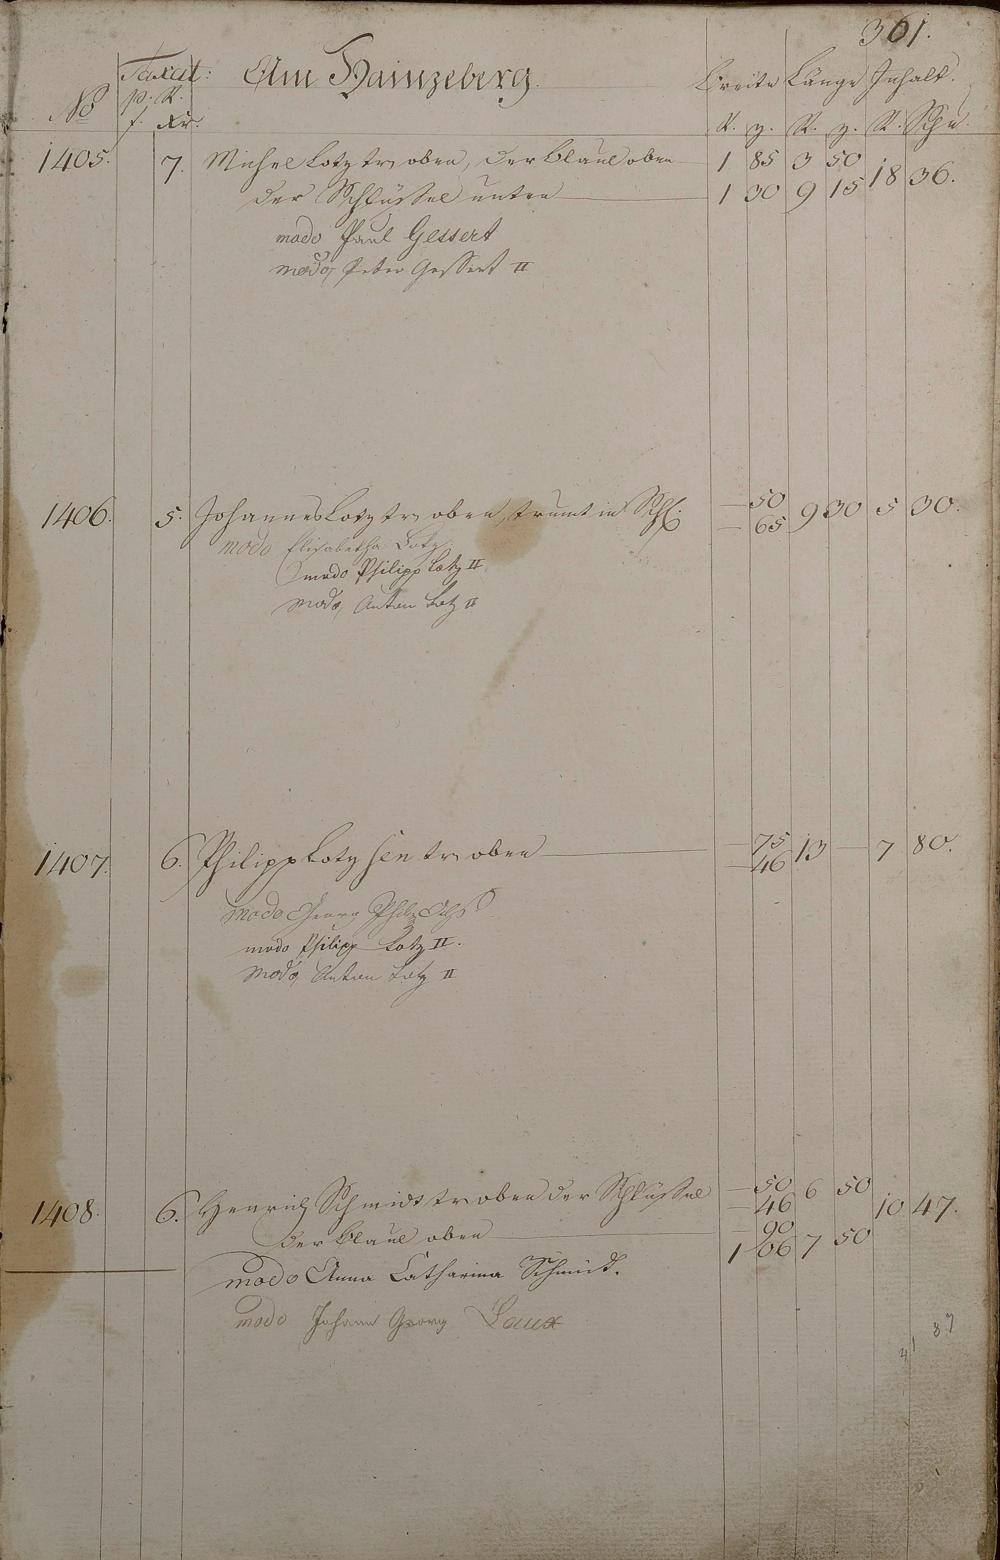 361.
Taxat: Am Hainzeberg. Breite Länge Inhalt.
No p. R.
f. Xr. R. z. R. z. R. Schu
1405. 7. Michel Lotz tr. oben, der blaue oben 1 85 3 50 18 36.
der Schlüssel unten 1 30 9 15
modo Paul Gessert
modo Peter Gessert II
1406. 5. Johannes Lotz tr. oben, trumt in Schl. — 50 9 30 5 30.
— 65
modo Elisabetha Lotz.
modo Philipp Lotz II
modo Anton Lotz II
1407. 6. Philipp Lotz sen tr. oben — 75 13 — 7 80.
— 46
modo Georg Phil. Ochs
modo Philipp Lotz II.
modo Anton Lotz II
1408. 6. Henrich Schmidt tr. oben der Schlüssel — 50 6 50 10 47.
— 46
der blaue oben — 90 7 50
1 06
modo Anna Catharina Schmidt.
modo Johann Georg Laux